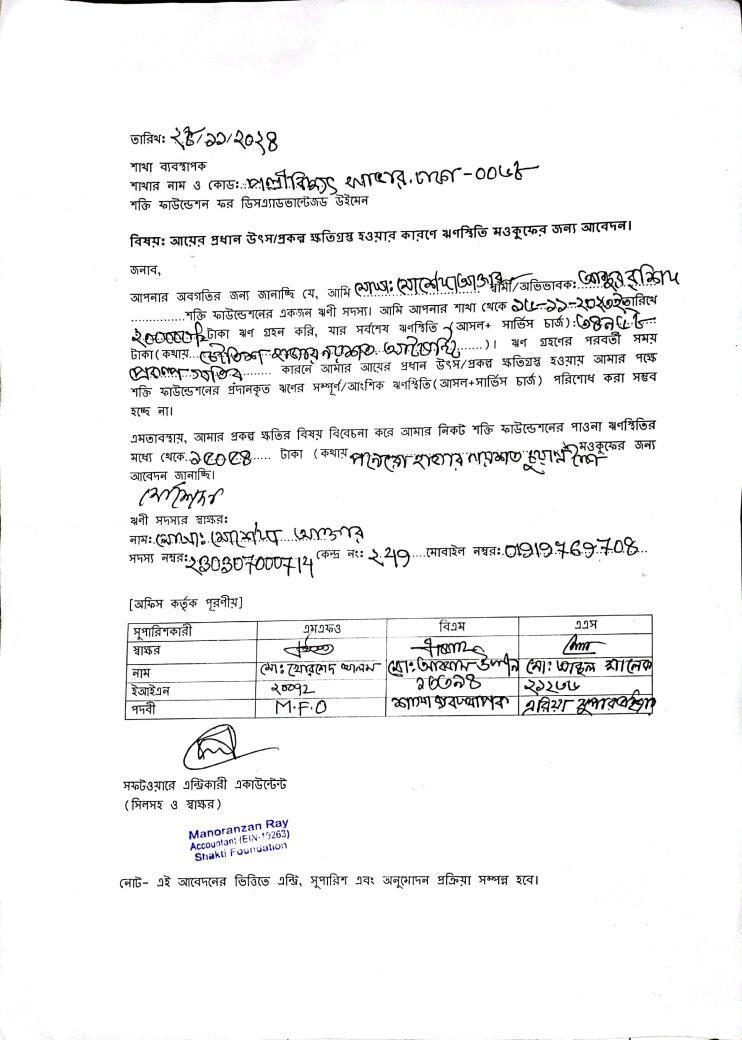 তারিখ: ২৪/১১/২০২৪
শাখা ব্যবস্থাপক
শাখার নাম ও কোড: পল্লীবিদ্যুৎ বাজার. ঢাকা-০০৫৪
শক্তি ফাউন্ডেশন ফর ডিসএ্যাডভান্টেজড উইমেন
বিষয়: আয়ের প্রধান উৎস/প্রকল্প ক্ষতিগ্রস্থ হওয়ার কারণে ঋণস্থিতি মওকুফের জন্য আবেদন।
জনাব,
আপনার অবগতির জন্য জানাচ্ছি যে, আমি মোসা: মোর্শেদা আক্তার স্বামী/অভিভাবক: আব্দুর রশিদ
...............শক্তি ফাউন্ডেশনের একজন ঋণী সদস্য। আমি আপনার শাখা থেকে ১৫-১১-২০২৩ইং তারিখে
টাকা ঋণ গ্রহন করি, যার সর্বশেষ ঋণস্থিতি (আসল+ সার্ভিস চার্জ):
টাকা (কথায়: হাজার নয়শত )। ঋণ গ্রহণের পরবর্তী সময়
প্রকল্প ক্ষতির ........ কারনে আমার আয়ের প্রধান উৎস/প্রকল্প ক্ষতিগ্রস্থ হওয়ায় আমার পক্ষে
শক্তি ফাউন্ডেশনের প্রদানকৃত ঋণের সম্পূর্ণ/আংশিক ঋণস্থিতি (আসল+সার্ভিস চার্জ) পরিশোধ করা সম্ভব
হচ্ছে না।
এমতাবস্থায়, আমার প্রকল্প ক্ষতির বিষয় বিবেচনা করে আমার নিকট শক্তি ফাউন্ডেশনের পাওনা ঋণস্থিতির
মধ্যে থেকে..১৫৯৫৪..... টাকা (কথায়: পনেরো হাজার নয়শত চুয়ান্ন ) মওকুফের জন্য
আবেদন জানাচ্ছি।
মোর্শেদা
ঋণী সদস্যর স্বাক্ষর:
নাম: মোসা: মোর্শেদা আক্তার
সদস্য নম্বর: ২30307000714 কেন্দ্র নং: ২49 .... মোবাইল নম্বর: 01919769708
[অফিস কর্তৃক পূরণীয়]
সুপারিশকারী এমএফও বিএম এএস
স্বাক্ষর
নাম মো: খোরশেদ আলম মো: আব্দুল মালেক
ইআইএন ২০০৭২ ১৬৩৯৪ ২১২৩৫
পদবী M.F.O শাখা ব্যবস্থাপক এরিয়া সুপারভাইজার
সফটওয়ারে এন্ট্রিকারী একাউন্টেন্ট
(সিলসহ ও স্বাক্ষর)
Manoranzan Ray
Accountant (EIN-19263)
Shakti Foundation
নোট- এই আবেদনের ভিত্তিতে এন্ট্রি, সুপারিশ এবং অনুমোদন প্রক্রিয়া সম্পন্ন হবে।